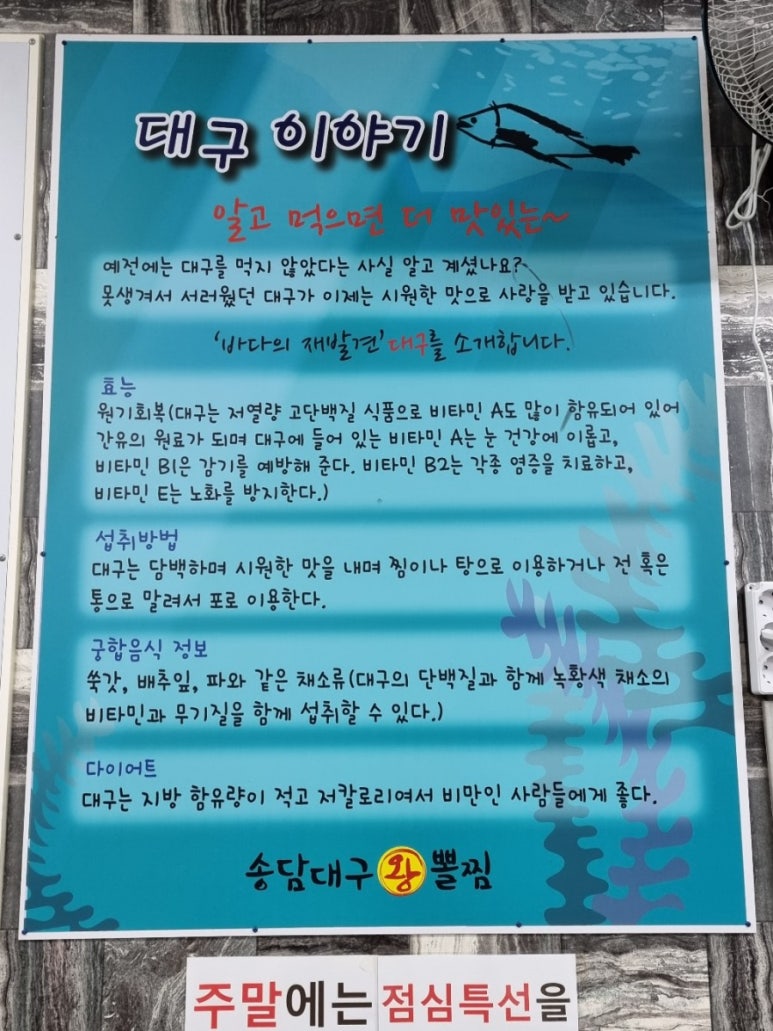 대구 이야기
알고 먹으면 더 맛있는~
예전에는 대구를 먹지 않았다는 사실 알고 계셨나요?
못생겨서 서러웠던 대구가 이제는 시원한 맛으로 사랑을 받고 있습니다.
'바다의 재발견' 대구를 소개합니다.
효능
원기회복(대구는 저열량 고단백질 식품으로 비타민 A도 많이 함유되어 있어
간유의 원료가 되며 대구에 들어 있는 비타민 A는 눈 건강에 이롭고,
비타민 B1은 감기를 예방해 준다. 비타민 B2는 각종 염증을 치료하고,
비타민 E는 노화를 방지한다.)
섭취방법
대구는 담백하며 시원한 맛을 내며 찜이나 탕으로 이용하거나 전 혹은
통으로 말려서 포로 이용한다.
궁합음식 정보
쑥갓, 배추잎, 파와 같은 채소류(대구의 단백질과 함께 녹황색 채소의
비타민과 무기질을 함께 섭취할 수 있다.)
다이어트
대구는 지방 함유량이 적고 저칼로리여서 비만인 사람들에게 좋다.
송담대구왕뽈찜
주말에는 점심특선을